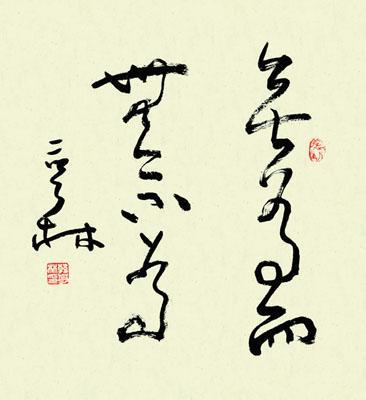 無為而
無不為